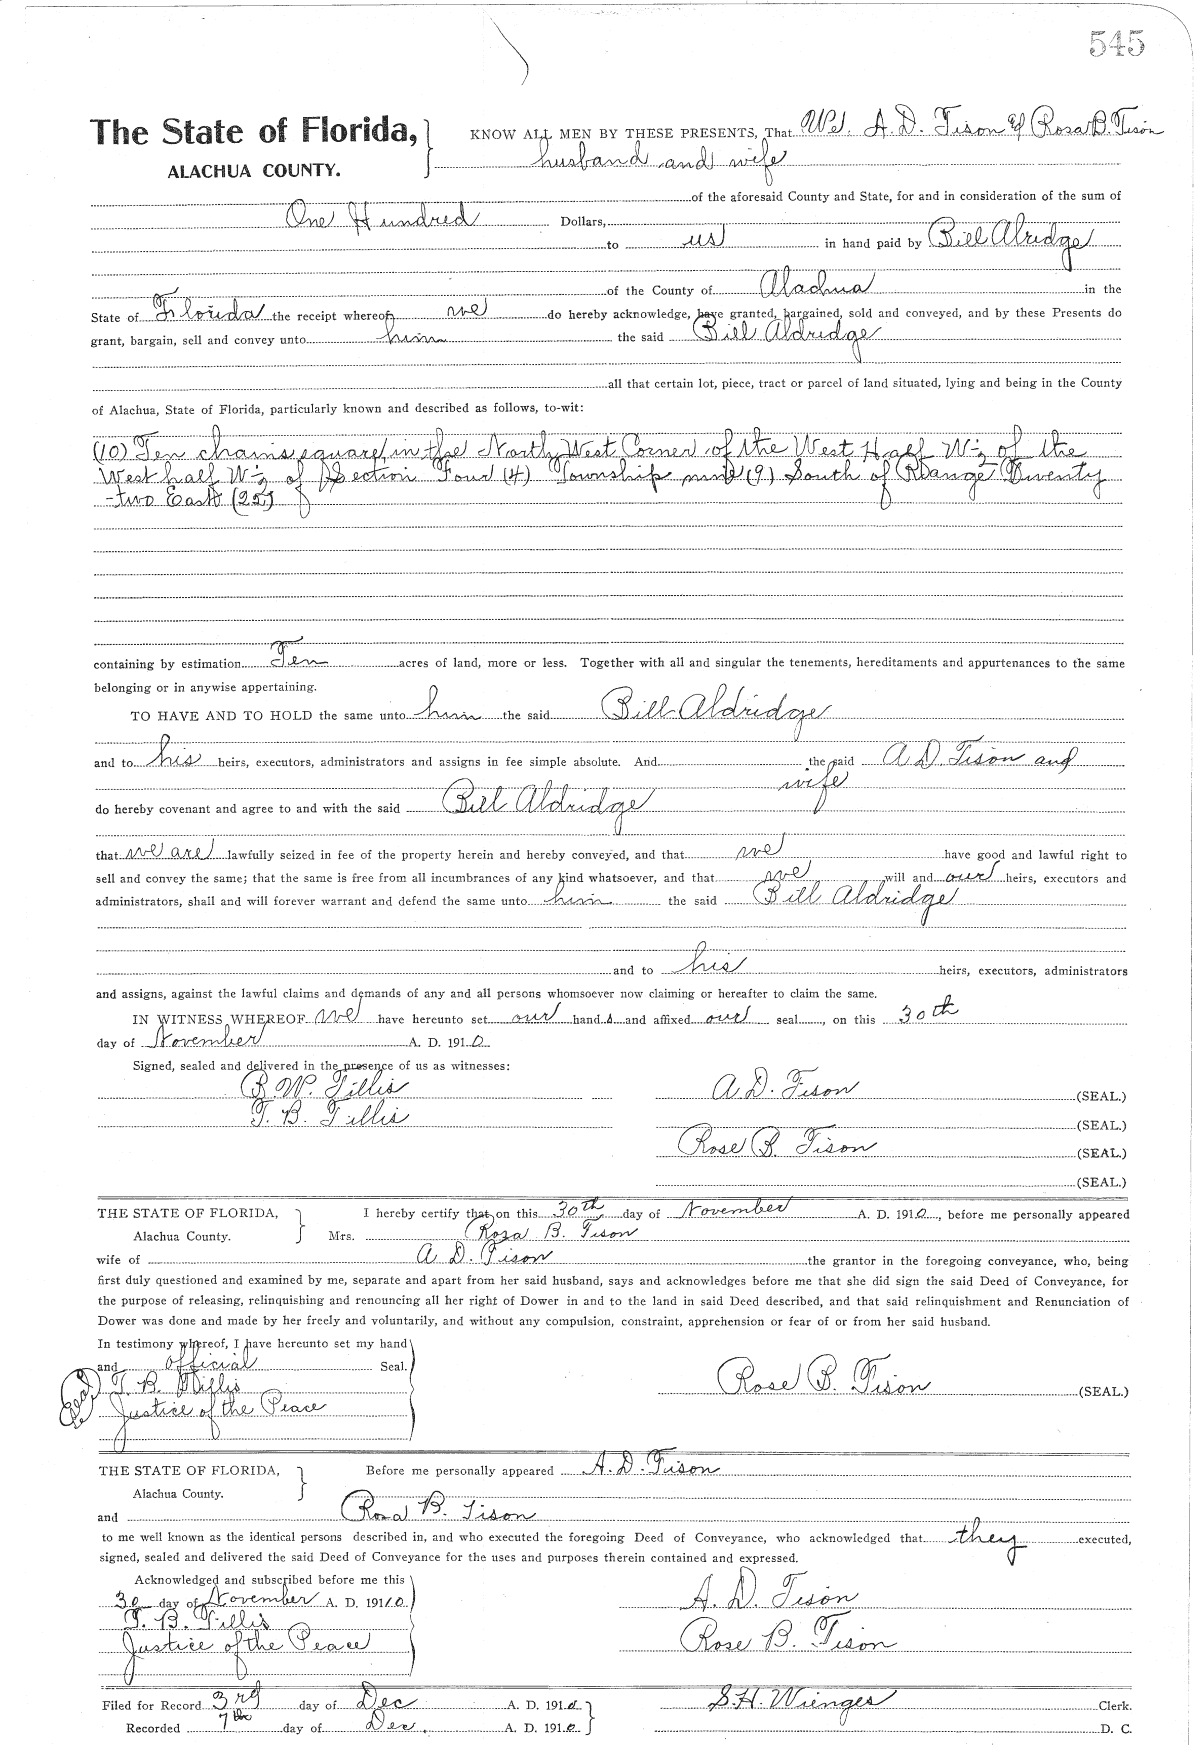 545
The State of Florida, KNOW ALL MEN BY THESE PRESENTS, That We, A. D. Tison & Rosa B. Tison
ALACHUA COUNTY. husband and wife
of the aforesaid County and State, for and in consideration of the sum of
One Hundred Dollars,
to us in hand paid by Bill Alridge
of the County of Alachua in the
State of Florida the receipt whereof we do hereby acknowledge, have granted, bargained, sold and conveyed, and by these Presents do
grant, bargain, sell and convey unto him the said Bill Aldridge
all that certain lot, piece, tract or parcel of land situated, lying and being in the County
of Alachua, State of Florida, particularly known and described as follows, to-wit:
(10) Ten chains square in the North West Corner of the West Half W½ of the
West half W½ of Section Four (4) Township nine (9) South of Range Twenty
-two East (22)
containing by estimation Ten acres of land, more or less. Together with all and singular the tenements, hereditaments and appurtenances to the same
belonging or in anywise appertaining.
TO HAVE AND TO HOLD the same unto him the said Bill Aldridge
and to his heirs, executors, administrators and assigns in fee simple absolute. And the said A D. Tison and
wife
do hereby covenant and agree to and with the said Bill Aldridge
that we are lawfully seized in fee of the property herein and hereby conveyed, and that we have good and lawful right to
sell and convey the same; that the same is free from all incumbrances of any kind whatsoever, and that we will and our heirs, executors and
administrators, shall and will forever warrant and defend the same unto him the said Bill Aldridge
and to his heirs, executors, administrators
and assigns, against the lawful claims and demands of any and all persons whomsoever now claiming or hereafter to claim the same.
IN WITNESS WHEREOF we have hereunto set our hands and affixed our seal, on this 30th
day of November A. D. 1910
Signed, sealed and delivered in the presence of us as witnesses:
B. W. Tillis A D. Tison (SEAL.)
T. B. Tillis (SEAL.)
Rose B. Tison (SEAL.)
(SEAL.)
THE STATE OF FLORIDA, I hereby certify that on this 30th day of November A. D. 1910, before me personally appeared
Alachua County. Mrs. Rosa B. Tison
wife of A D. Tison the grantor in the foregoing conveyance, who, being
first duly questioned and examined by me, separate and apart from her said husband, says and acknowledges before me that she did sign the said Deed of Conveyance, for
the purpose of releasing, relinquishing and renouncing all her right of Dower in and to the land in said Deed described, and that said relinquishment and Renunciation of
Dower was done and made by her freely and voluntarily, and without any compulsion, constraint, apprehension or fear of or from her said husband.
In testimony whereof, I have hereunto set my hand
and official Seal.
Seal T. B. Tillis Rose B. Tison (SEAL.)
Justice of the Peace
THE STATE OF FLORIDA, Before me personally appeared A. D. Tison
Alachua County.
and Rosa B. Tison
to me well known as the identical persons described in, and who executed the foregoing Deed of Conveyance, who acknowledged that they executed,
signed, sealed and delivered the said Deed of Conveyance for the uses and purposes therein contained and expressed.
Acknowledged and subscribed before me this
30 day of November A. D. 1910 A. D. Tison
T. B. Tillis
Justice of the Peace Rose B. Tison
Filed for Record 3rd day of Dec A. D. 1910 S. H. Wienges Clerk.
Recorded 7th day of Dec. A. D. 1910 D. C.